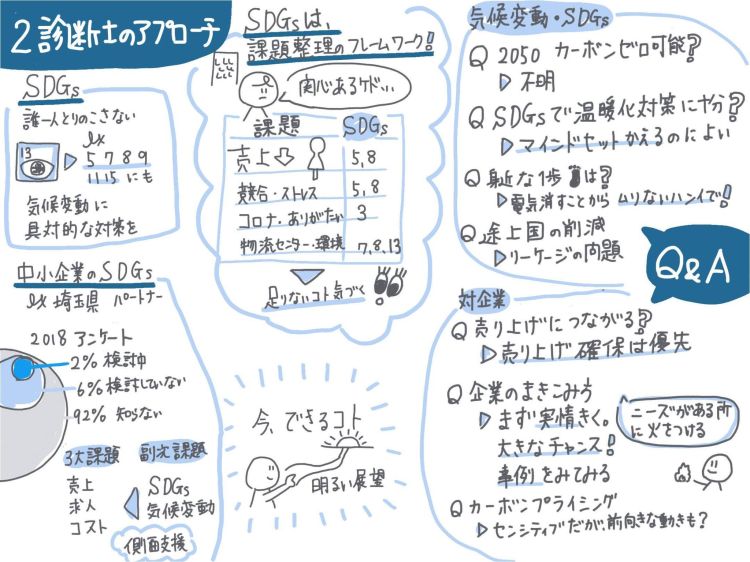 2 診断士のアプローチ
SDGs
誰一人とりのこさない
13
ex
5 7 8 9
11 15 にも
気候変動に
具対的な対策を
中小企業のSDGs
ex 埼玉県 パートナー
2018 アンケート
2% 検討中
6% 検討していない
92% 知らない
3大課題
副次課題
売上
求人
コスト
SDGs
気候変動
側面支援
SDGsは、
課題整理のフレームワーク!
関心あるケド、、、
課題
SDGs
売上
5,8
競合・ストレス
5,8
コロナ・ありがたい
3
物流センター・環境
7,8,13
足りないコト気づく
今、できるコト
明るい展望
気候変動・SDGs
Q 2050 カーボンゼロ可能?
不明
Q SDGsで温暖化対策に十分?
マインドセットかえるのによい
Q 身近な1歩は?
電気消すことから ムリないハンイで!
Q 途上国の削減
リーケージの問題
Q&A
対企業
Q 売り上げにつながる?
売り上げ確保は優先
Q 企業のまきこみう
まず実情きく。
大きなチャンス!
事例をみてみる
ニーズがある所
に火をつける
Q カーボンプライシング
センシティブだが、前向きな動きも?